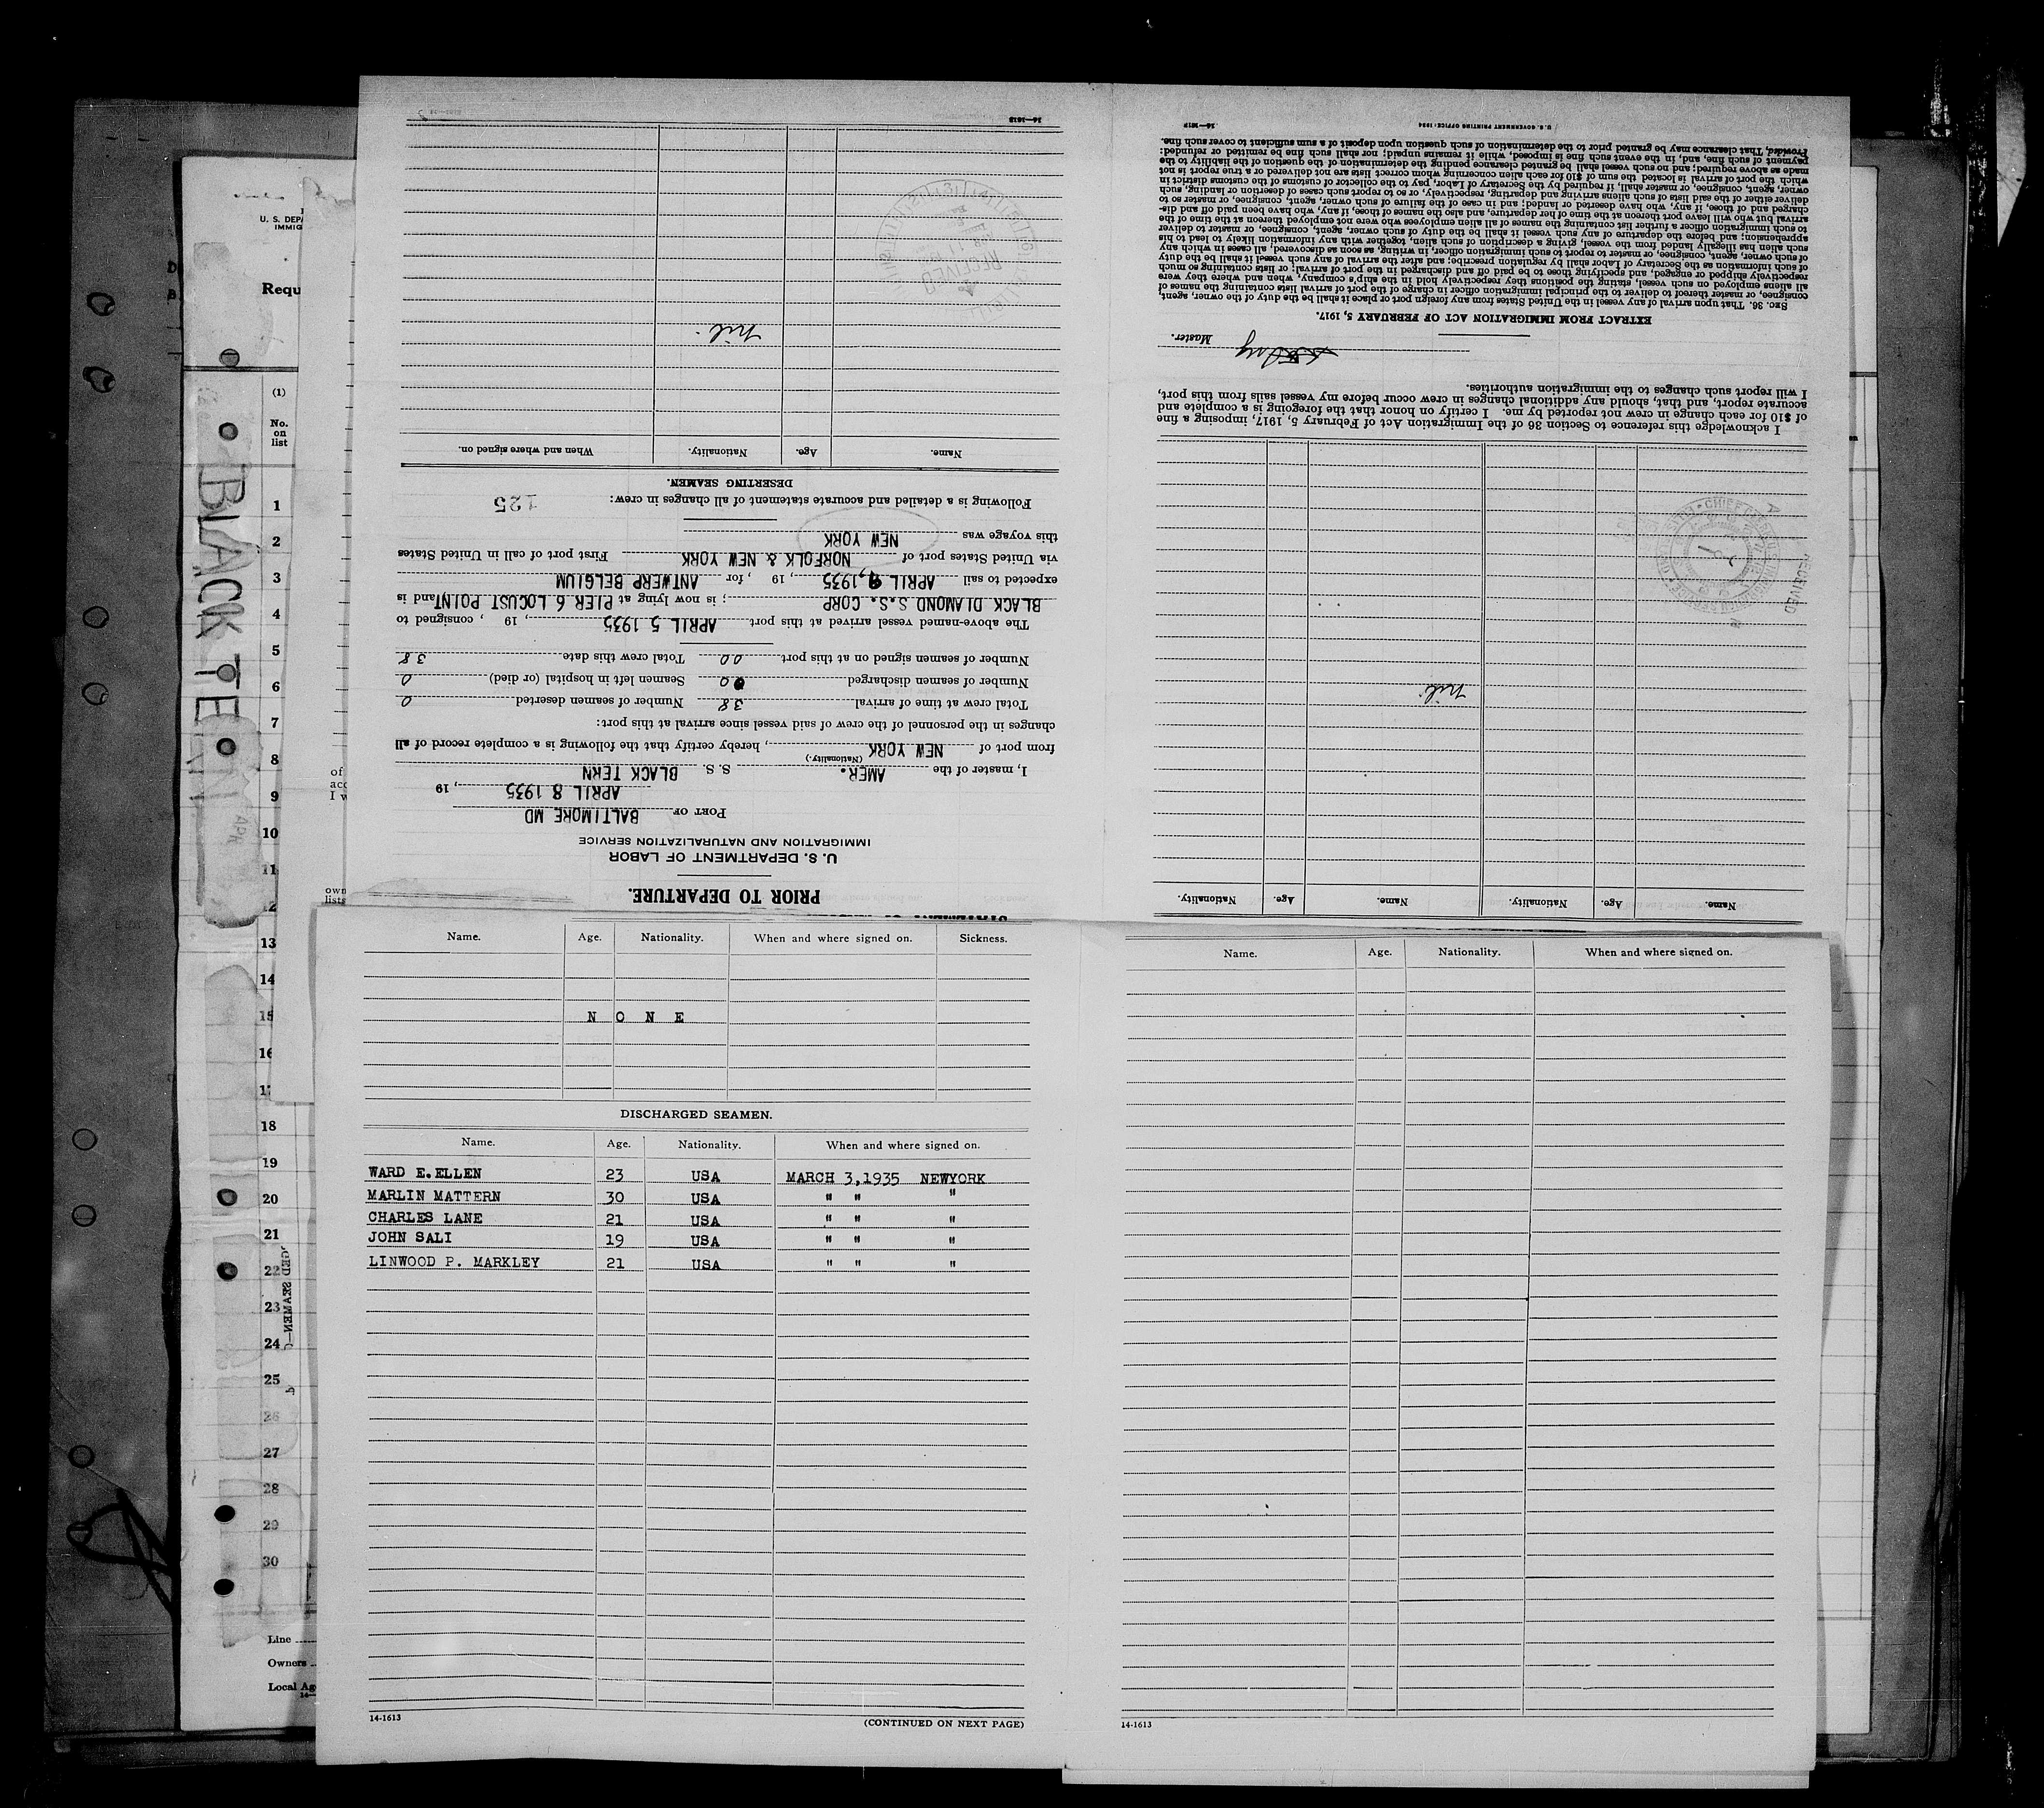 PRIOR TO DEPARTURE.
U. S. DEPARTMENT OF LABOR
IMMIGRATION AND NATURALIZATION SERVICE
PORT OF BALTIMORE MD
APRIL 8 1935, 19
I, master of the AMER. S. S. BLACK TERN
(Nationality.)
from port of NEW YORK, hereby certify that the following is a complete record of all
changes in the personnel of the crew of said vessel since arrival at this port:
Total crew at time of arrival 38 Number of seamen deserted 0
Number of seamen discharged 0 Seamen left in hospital (or died) 0
Number of seamen signed on at this port 00 Total crew this date 38
The above-named vessel arrived at this port APRIL 5 1935, 19 , consigned to
BLACK DIAMOND S.S. CORP ; is now lying at PIER 6 LOCUST POINT and is
expected to sail APRIL 9, 1935, 19 , for ANTWERP BELGIUM
via United States port of NORFOLK & NEW YORK First port of call in United States
this voyage was NEW YORK
Following is a detailed and accurate statement of all changes in crew: 125
DESERTING SEAMEN.
Name. Age. Nationality. When and where signed on.
Nil.
14—1613
RECEIVED
Name. Age. Nationality. Name. Age. Nationality.
Nil
RECEIVED
CHIEF
I acknowledge this reference to Section 36 of the Immigration Act of February 5, 1917, imposing a fine
of $10 for each change in crew not reported by me. I certify on honor that the foregoing is a complete and
accurate report, and that, should any additional changes in crew occur before my vessel sails from this port,
I will report such changes to the immigration authorities.
Master.
EXTRACT FROM IMMIGRATION ACT OF FEBRUARY 5, 1917.
SEC. 36. That upon arrival of any vessel in the United States from any foreign port or place it shall be the duty of the owner, agent,
consignee, or master thereof to deliver to the principal immigration officer in charge of the port of arrival lists containing the names of
all aliens employed on such vessel, stating the positions they respectively hold in the ship's company, when and where they were
respectively shipped or engaged, and specifying those to be paid off and discharged in the port of arrival; or lists containing so much
of such information as the Secretary of Labor shall by regulation prescribe; and after the arrival of any such vessel it shall be the duty
of such owner, agent, consignee, or master to report to such immigration officer, in writing, as soon as discovered, all cases in which any
such alien has illegally landed from the vessel, giving a description of such alien, together with any information likely to lead to his
apprehension; and before the departure of any such vessel it shall be the duty of such owner, agent, consignee, or master to deliver
to such immigration officer a further list containing the names of all alien employees who were not employed thereon at the time of the
arrival but who will leave port thereon at the time of her departure, and also the names of those, if any, who have been paid off and dis-
charged and of those, if any, who have deserted or landed; and in case of the failure of such owner, agent, consignee, or master so to
deliver either of the said lists of such aliens arriving and departing, respectively, or so to report such cases of desertion or landing, such
owner, agent, consignee, or master shall, if required by the Secretary of Labor, pay to the collector of customs of the customs district in
which the port of arrival is located the sum of $10 for each alien concerning whom correct lists are not delivered or a true report is not
made as above required; and no such vessel shall be granted clearance pending the determination of the question of the liability to the
payment of such fine, and, in the event such fine is imposed, while it remains unpaid; nor shall such fine be remitted or refunded:
Provided, That clearance may be granted prior to the determination of such question upon deposit of a sum sufficient to cover such fine.
14—1613 U. S. GOVERNMENT PRINTING OFFICE: 1934
U. S. DEPA
IMMIG
Requ
(1)
No.
on
list
1
2
3
4
5
6
7
8
9
10
11
12
13
14
15
16
18
19
20
21
22
23
24
25
26
27
28
29
30
Line
Owners
Local Ag
14—
BLACK TE
APR
of
acc
I w
own
lists
GED SEAMEN—
Name. Age. Nationality. When and where signed on. Sickness.
N O N E
DISCHARGED SEAMEN.
Name. Age. Nationality. When and where signed on.
WARD E. ELLEN 23 USA MARCH 3,1935 NEWYORK
MARLIN MATTERN 30 USA " " "
CHARLES LANE 21 USA " " "
JOHN SALI 19 USA " " "
LINWOOD P. MARKLEY 21 USA " " "
14-1613 (CONTINUED ON NEXT PAGE)
Name. Age. Nationality. When and where signed on.
14-1613